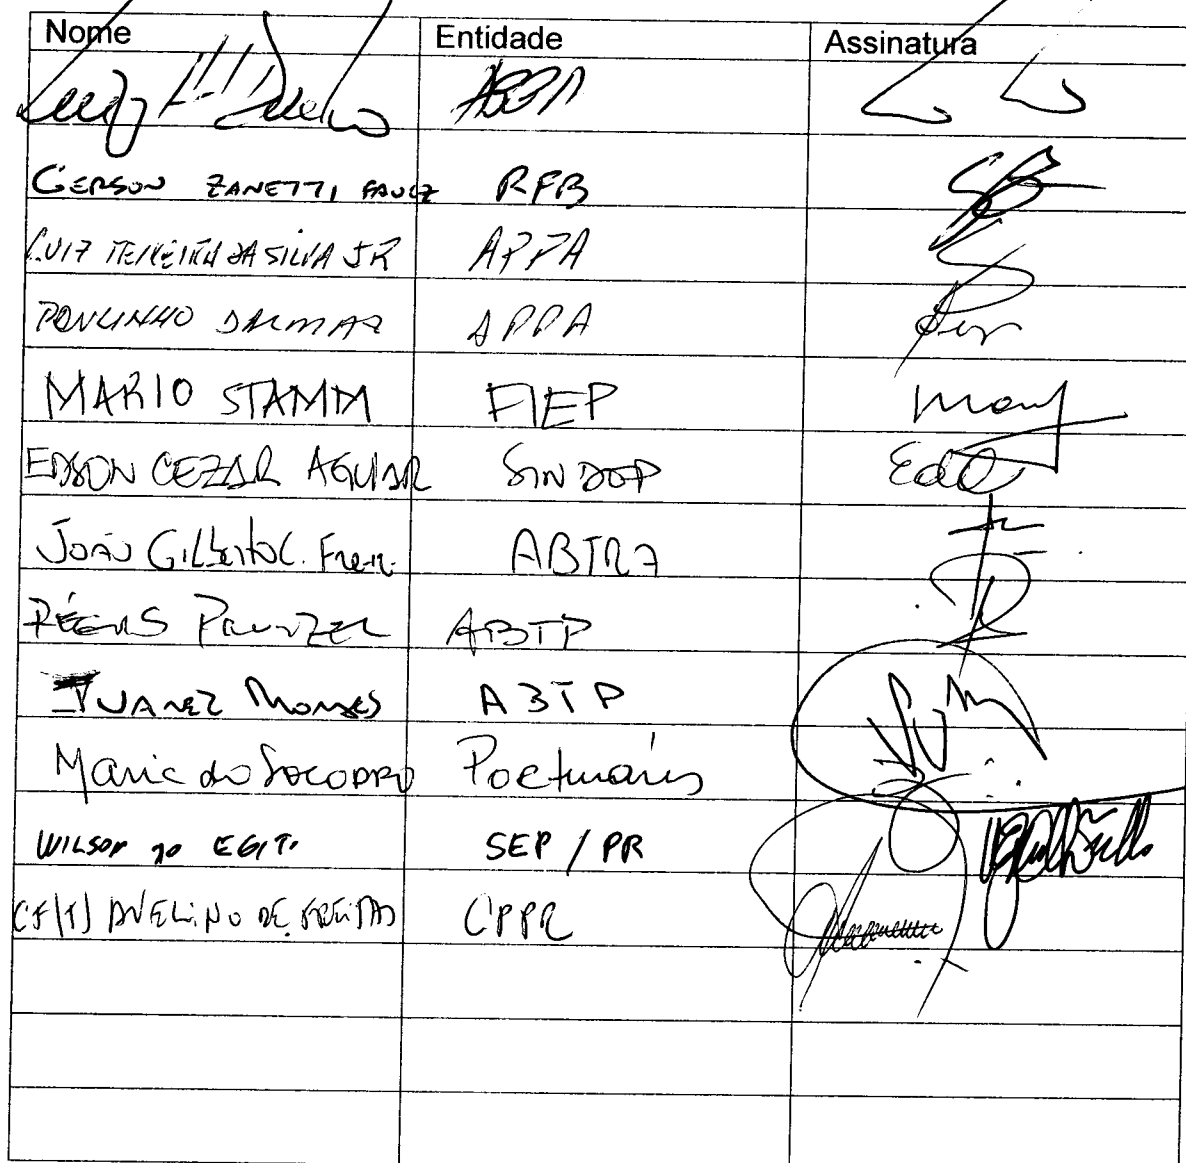 Nome Entidade Assinatura
Luiz
GERSON ZANETTI FAUCZ RFB
LUIZ TEIXEIRA DA SILVA JR APPA
PAULINHO DALMAZ APPA
MARIO STAMM FIEP
EDSON CEZAR AGUIAR SINDOP
João Gilberto C. Freire ABTRA
RÉGIS PRUNZEL ABTP
JUAREZ MORAES ABTP
Maria do Socorro Portuários
WILSON DO EGITO SEP / PR
CF(T) AVELINO DE FREITAS CPPR